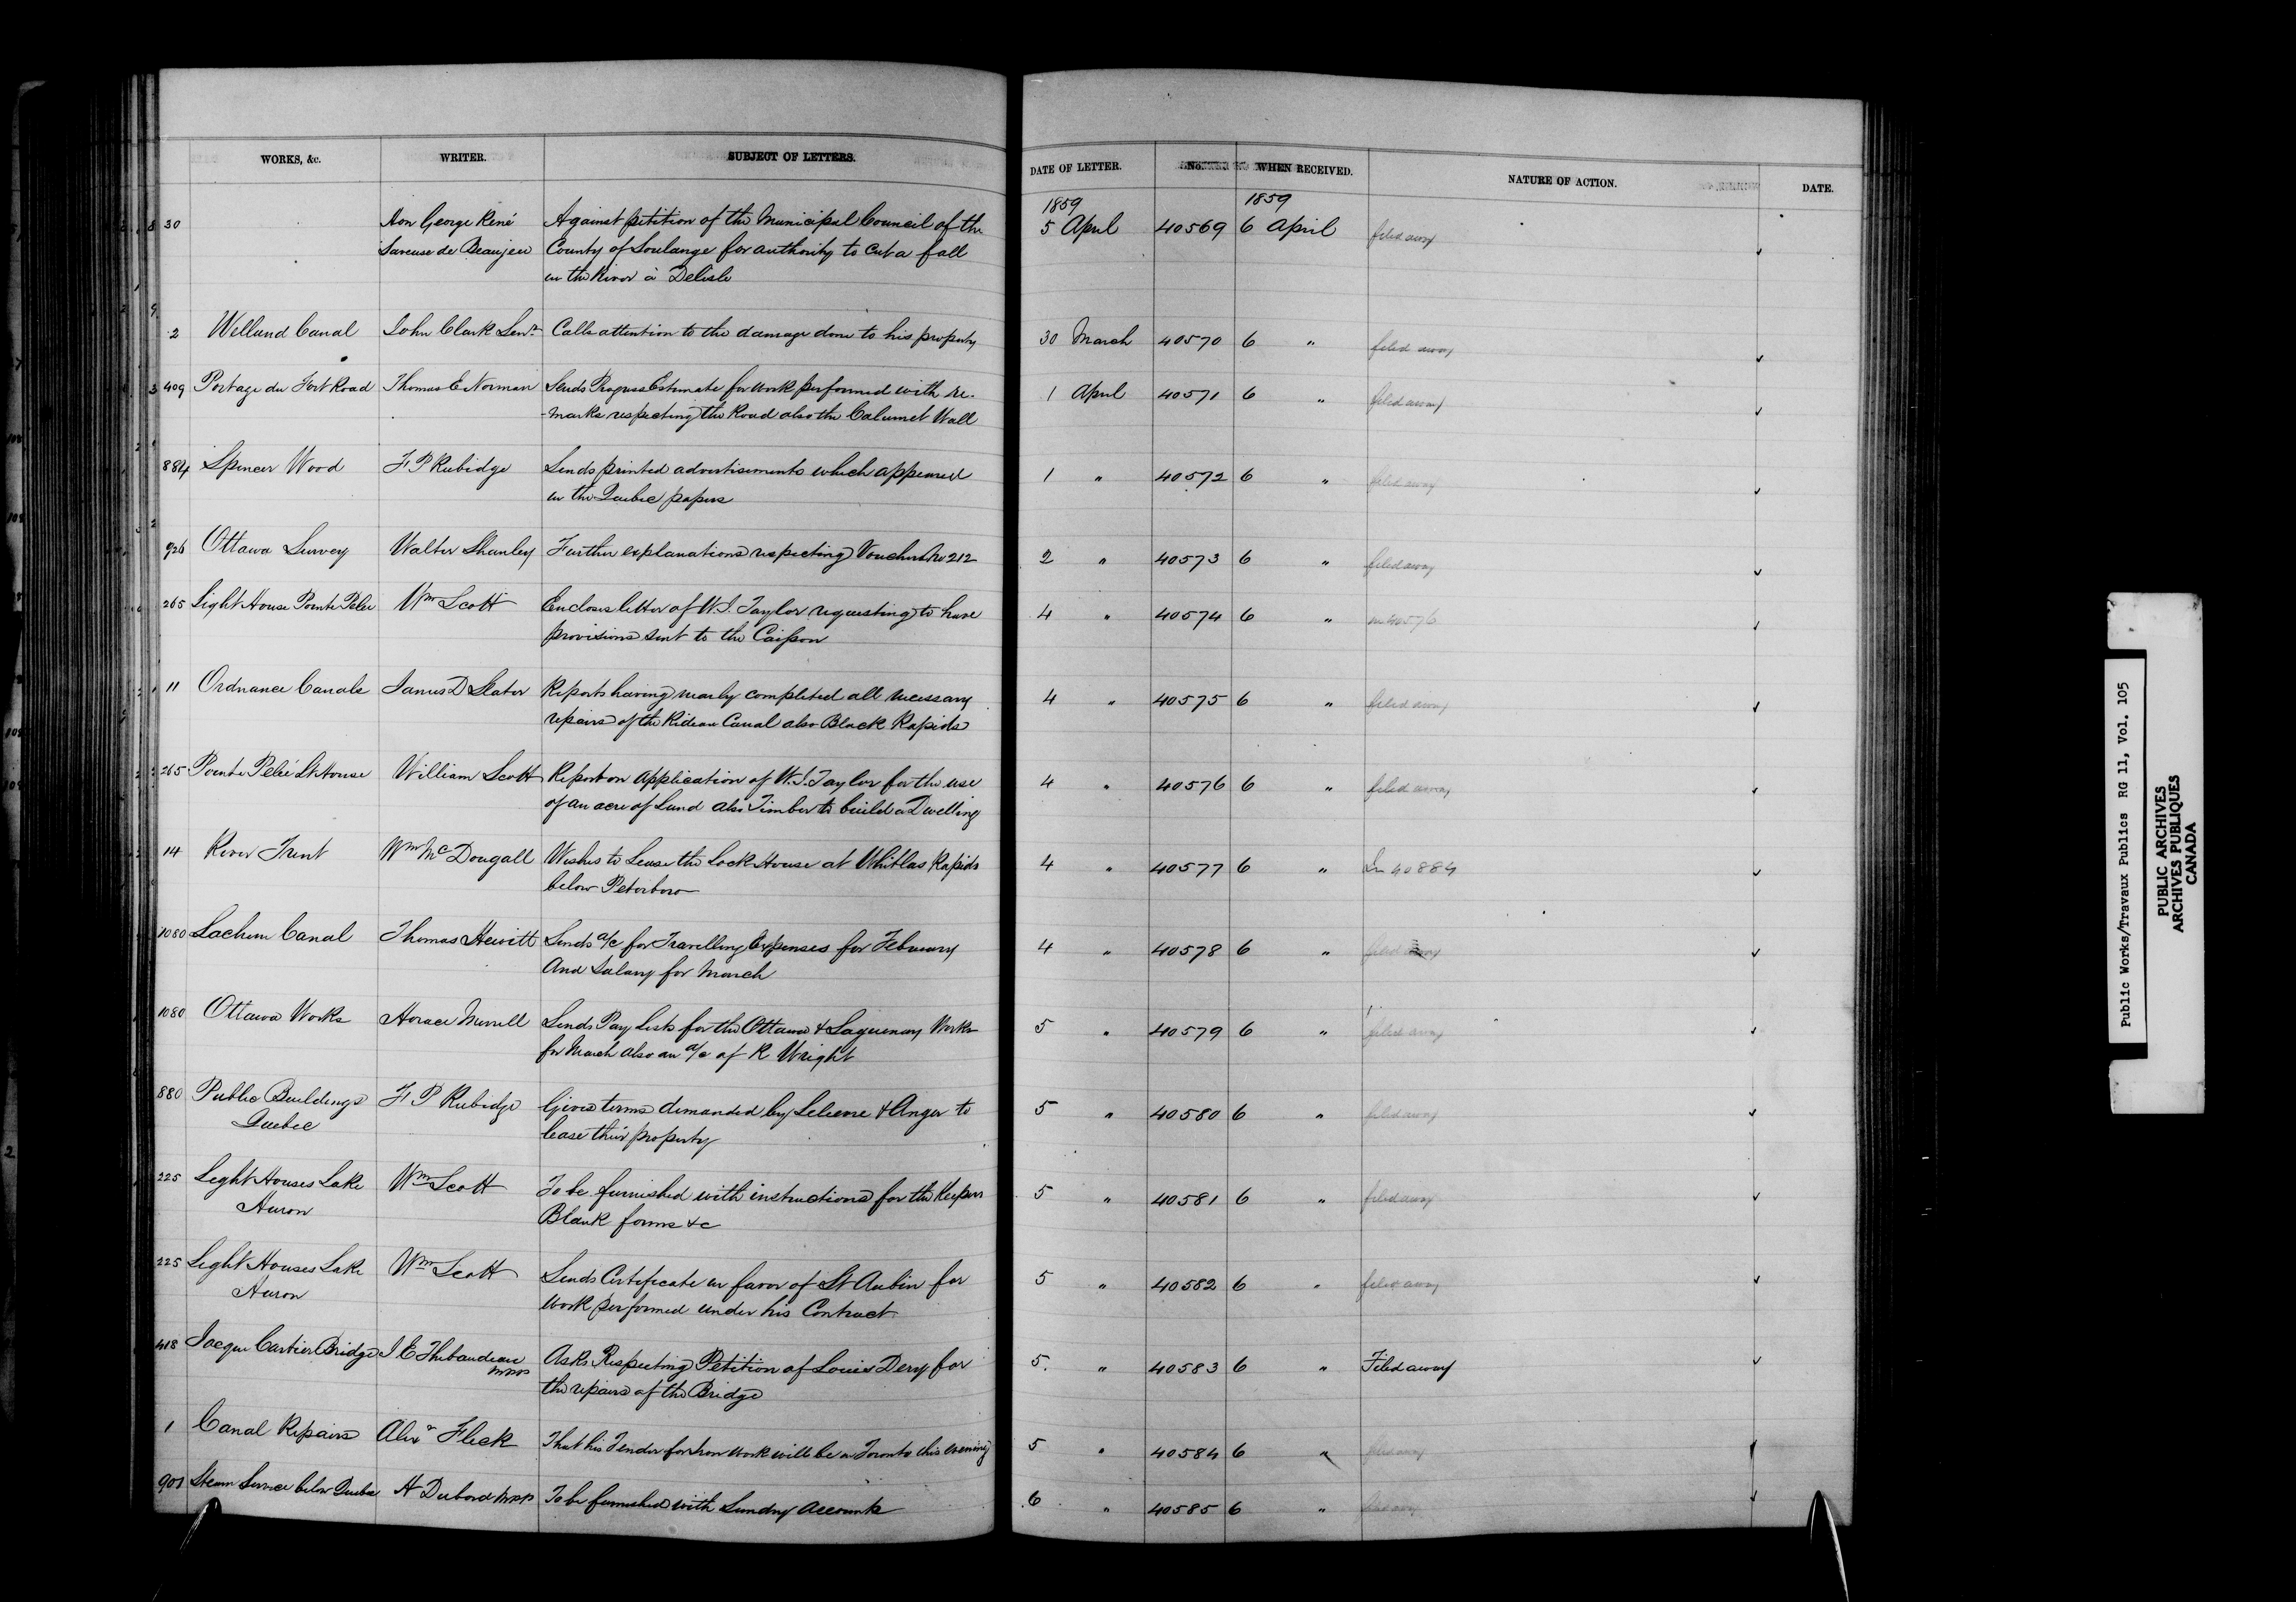 WORKS, &c. WRITER. SUBJECT OF LETTERS. DATE OF LETTER. No. WHEN RECEIVED. NATURE OF ACTION. DATE.
1859 1859
30 Hon George René Against petition of the Municipal Council of the 5 April 40569 6 April filed away
Saveuse de Beaujeu County of Soulange for authority to cut a fall
in the River à Delisle
2 Welland Canal John Clark Senr Calls attention to the damage done to his property 30 March 40570 6 " filed away
409 Portage du Fort Road Thomas E Norman Sends Progress Estimate for work performed with re- 1 April 40571 6 " filed away
-marks respecting the Road also the Calumet Wall
884 Spencer Wood F P Rubidge Sends printed advertisements which appeared 1 " 40572 6 " filed away
in the Quebec papers
926 Ottawa Survey Walter Shanly Further explanations respecting Voucher No 212 2 " 40573 6 " filed away
265 Light House Pointe Pelee Wm Scott Encloses letter of W.S. Taylor requesting to have 4 " 40574 6 " in 40576
provisions sent to the Caisson
11 Ordnance Canals James D Slater Reports having nearly completed all necessary 4 " 40575 6 " filed away
repairs of the Rideau Canal also Black Rapids
265 Pointe Peleé Lt House William Scott Report on application of W.S. Taylor for the use 4 " 40576 6 " filed away
of an acre of Land also Timber to build a Dwelling
14 River Trent Wm McDougall Wishes to Lease the Lock House at Whitlas Rapids 4 " 40577 6 " In 40884
below Peterboro
1080 Lachine Canal Thomas Hewitt Sends a/c for Travelling Expenses for February 4 " 40578 6 " filed away
And Salary for March
1080 Ottawa Works Horace Merrill Sends Pay Lists for the Ottawa & Saguenay Works 5 " 40579 6 " filed away
for March also an a/c of R Wright
880 Public Buildings F P Rubidge Gives terms demanded by Lelievre & Anger to 5 " 40580 6 " filed away
Quebec lease their property
225 Light Houses Lake Wm Scott To be furnished with instructions for the Keepers 5 " 40581 6 " filed away
Huron Blank forms &c
225 Light Houses Lake Wm Scott Sends Certificate in favor of St Aubin for 5 " 40582 6 " filed away
Huron work performed under his Contract
418 Jacque Cartier Bridge J E Thibaudeau Asks Respecting Petition of Louis Dery for 5 " 40583 6 " Filed away
MPP the repairs of the Bridge
1 Canal Repairs Alexr Fleck That his Tender for Iron work will be in Toronto this evening 5 " 40584 6 " filed away
901 Steam Service below Quebec H Dubord MPP To be furnished with Sundry accounts 6 " 40585 6 " filed away
Public Works/Travaux Publics RG 11, Vol. 105
PUBLIC ARCHIVES
ARCHIVES PUBLIQUES
CANADA